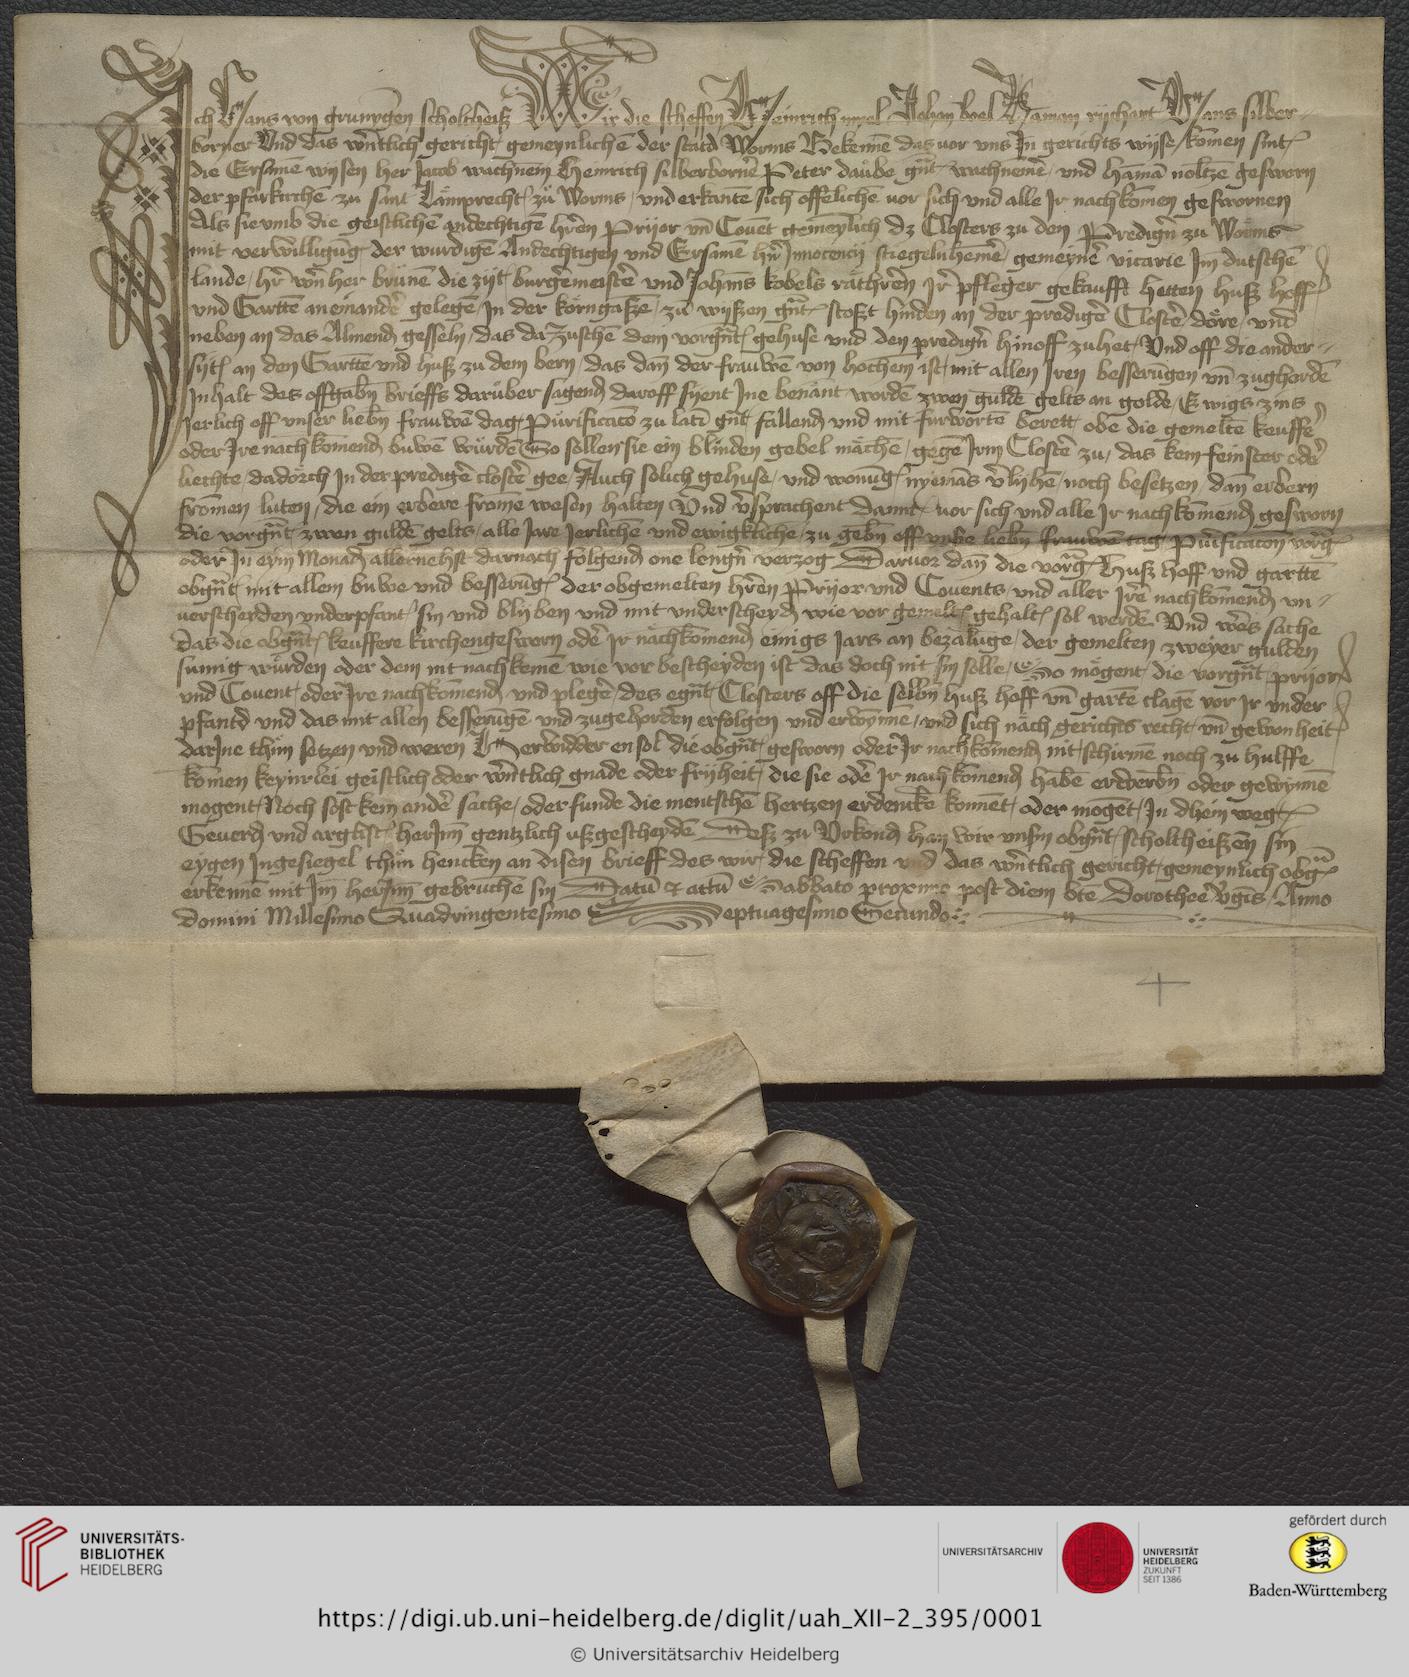 Ich Hans von grunyngen scholtheiß Wir die scheffen Heinrich Johan boel Haman rychart Hans silber-
borner Vnd das wērtlich gericht gemeynlichē der stat Worms Bekennē das vor vns Jn gerichts wyse komen sint
die Ersamē wysen her Jacob wachnem Heinrich silberbornē Peter daube gn̄t wachnemē, und hāmā noltze gesworn
der pfarkirchen zu sant Lamprecht zu Worms, und erkanten sich offelichē vor sich und alle Jr nachkomen geswornen
Als sie vmb die geistlichen andechtigen hrēn Prijor vn̄ Couēt gemeylich dz Closters zu den Predigrn zu Worms
mit verwilligūg der wurdigē Andechtigen vnd Ersamē hrn̄ Jnnocencij stiegelnhemē, gemeynē vicarie Jm dutschē
lande, hr̄ her brunē die zijt burgēmeistē vnd Johans kobels rathrēn Jr pfleger gekaufft hetten huß hoff
vnd Garttē an einandē gelegē, Jn der korngaßē, zu wyßen gn̄t stoßt hinden an der predigē Clostē dore, vnd
neben an das Almend gesseln, das da zuschē dem vorgn̄t gehuse vnd den predigrn hinoff zuhet, Vnd off die ander
sijt an den Garttē vnd huß zu dem bern, das dan̄ der frauwē von hochem ist, mit allen Jren besserūgen vn̄ zughordē
Jnhalt des offgabn̄ brieffs daruber sagend daroff syent Jne benant wordē zwen guldē gelts an golde, Ewigs zins
Jerlich off vnser liebn̄ frauwē dag Purificacō zu latī gn̄t fallend vnd mit furwortē berett, obe die gemeltē keuffē
oder Jre nachkomend buwē wurdē So sollen sie ein blinden gebel machē, gegē Jrm Clostē zu, das kem feinster odē
liechte, dadorch Jn der predigē clostē gee, Auch solich gehuse, vnd wonūg nyemās v̄lyhē, noch besetzen, dan̄ erbern
fromen luten, die ein erbere fromē wesen halten Vnd v̄sprachent damit vor sich vnd alle Jr nachkomend gesworn
die vorgn̄t zwen guldē gelts, alle Jare Jerlichē vnd ewigklichē, zu gebn̄ off vnse liebn̄ frauwē tag Purificacon vorḡ
oder Jn eym Monad allernehst darnach folgend one lengrn verzog Daruor dan̄ die vorḡ Huß hoff vnd garttē
obgn̄t mit allem buwe vnd besserūg der obgemelten hrēn Prijor vnd Couents, vnd aller Jrē nachkomend vn-
uerscheyden vnderpfant sin vnd blyben vnd mit vnderscheyd wie vor gemelt gehalt sol werdē Vnd wēs sache
das die obgn̄t keuffere kirchengesworn odē Jr nachkomend einigs Jars an bezaluge, der gemelten zweyer gulden
sumig wurden oder dem nit nachkeme wie vor bescheyden ist das doch nit sin solle, So mogent, die vorgn̄t prijor
vnd Couent, oder Jre nachkomend vnd plegē, des egn̄t Closters off die selbn̄ huß hoff vn̄ gartē clagē vor Jr vnder
pfantd vnd das mit allen besserūgē vnd zugehorden erfolgen vnd erwynnē, vnd sich nach gerichts recht, vn̄ gewonheit
darJne thun setzen vnd weren Herwidder en sol die obgn̄t, gesworn oder Jr nachkomend nit, schirmē noch zu hulffe
komen keynrlei geistlich oder wērtlich gnade oder fryheit, die sie odē Jr nachkomend habē erwerbn̄ oder gewynnē
mogent, Noch sost kem andē sache, oder funde die mentschē hertzen erdenckē konnēt, oder mogēt, Jn dhein weg
Geuerd vnd arglist herJnn gentzlich ußgescheydē Deß zu Vrkond han wir vnsm obgn̄t scholtheißen sin
eygen Jngesiegel thun hencken an disen brieff des wir, die scheffen vnd das wērtlich gericht, gemeynlich obḡ
erkennē mit Jm herJnn gebruchē sin Datū & actū Sabbato proxime post diem btē Dorothee v̄gīs, Anno
domini Millesimo Quadringentesimo Septuagesimo Secundo
UNIVERSITÄTS-
BIBLIOTHEK
HEIDELBERG
UNIVERSITÄTSARCHIV
UNIVERSITÄT
HEIDELBERG
ZUKUNFT
SEIT 1386
gefördert durch
Baden-Württemberg
https://digi.ub.uni-heidelberg.de/diglit/uah_XII-2_395/0001
© Universitätsarchiv Heidelberg